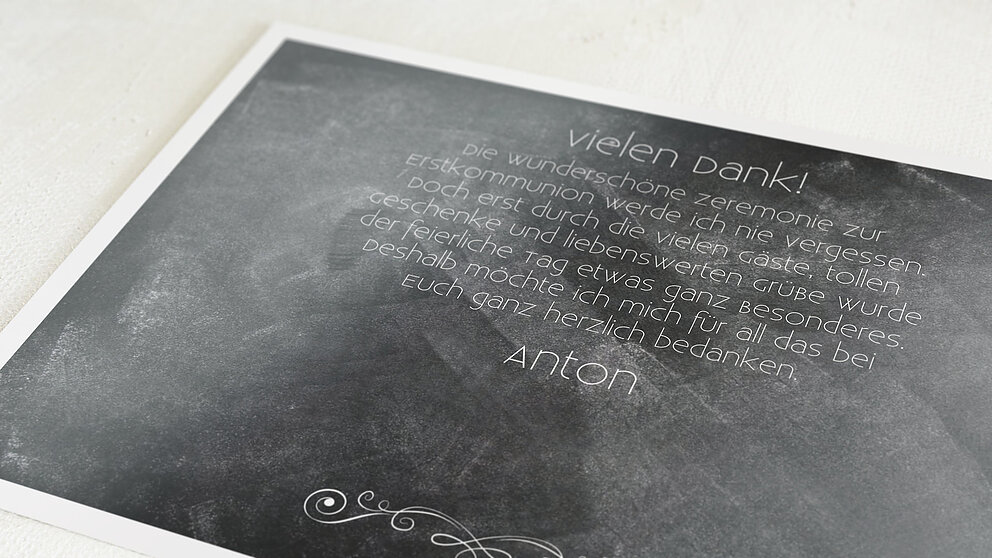 Vielen Dank!
Die wunderschöne Zeremonie zur
Erstkommunion werde ich nie vergessen.
Doch erst durch die vielen Gäste, tollen
Geschenke und liebenswerten Grüße wurde
der feierliche Tag etwas ganz Besonderes.
Deshalb möchte ich mich für all das bei
Euch ganz herzlich bedanken.
Anton